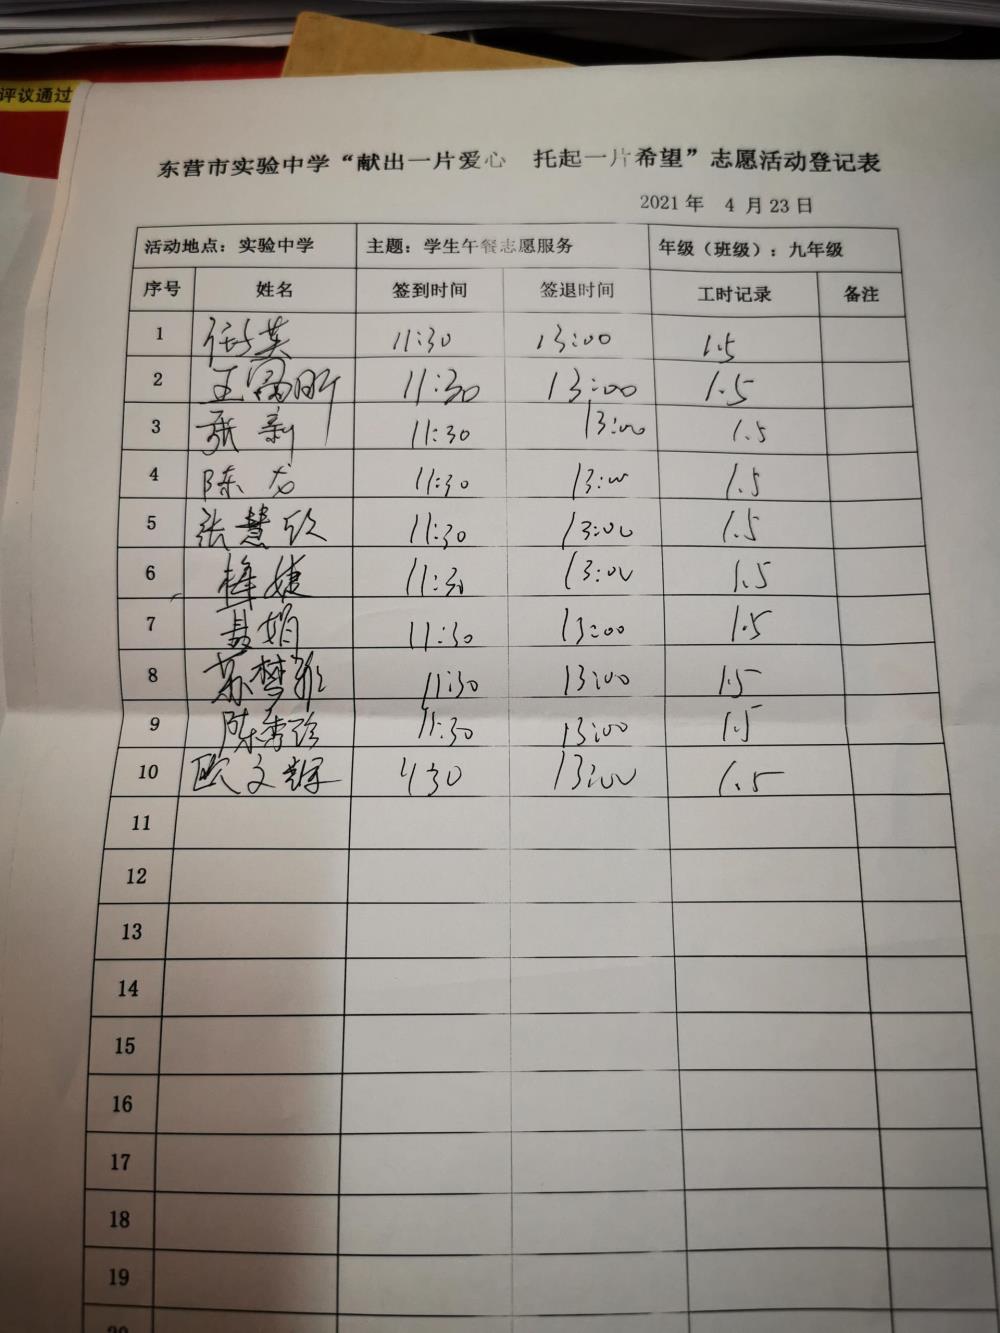 评议通过
东营市实验中学“献出一片爱心 托起一片希望”志愿活动登记表
2021年 4月23日
活动地点：实验中学 主题：学生午餐志愿服务 年级（班级）：九年级
序号 姓名 签到时间 签退时间 工时记录 备注
1 英 11:30 13:00 1.5
2 王 昕 11:30 13:00 1.5
3 张新 11:30 13:00 1.5
4 陈龙 11:30 13:00 1.5
5 张慧欣 11:30 13:00 1.5
6 婕 11:30 13:00 1.5
7 聂娟 11:30 13:00 1.5
8 苏梦雅 11:30 13:00 1.5
9 陈秀珍 11:30 13:00 1.5
10 欧文辉 1130 13:00 1.5
11
12
13
14
15
16
17
18
19
20